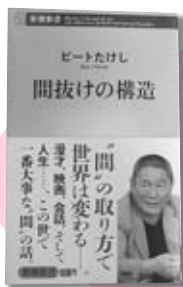 新潮新書
ビートたけし
間抜けの構造
“間”の取り方で
世界は変わる—。
漫才、映画、会話、そして
人生……、この世で
一番大事な、“間”の話。